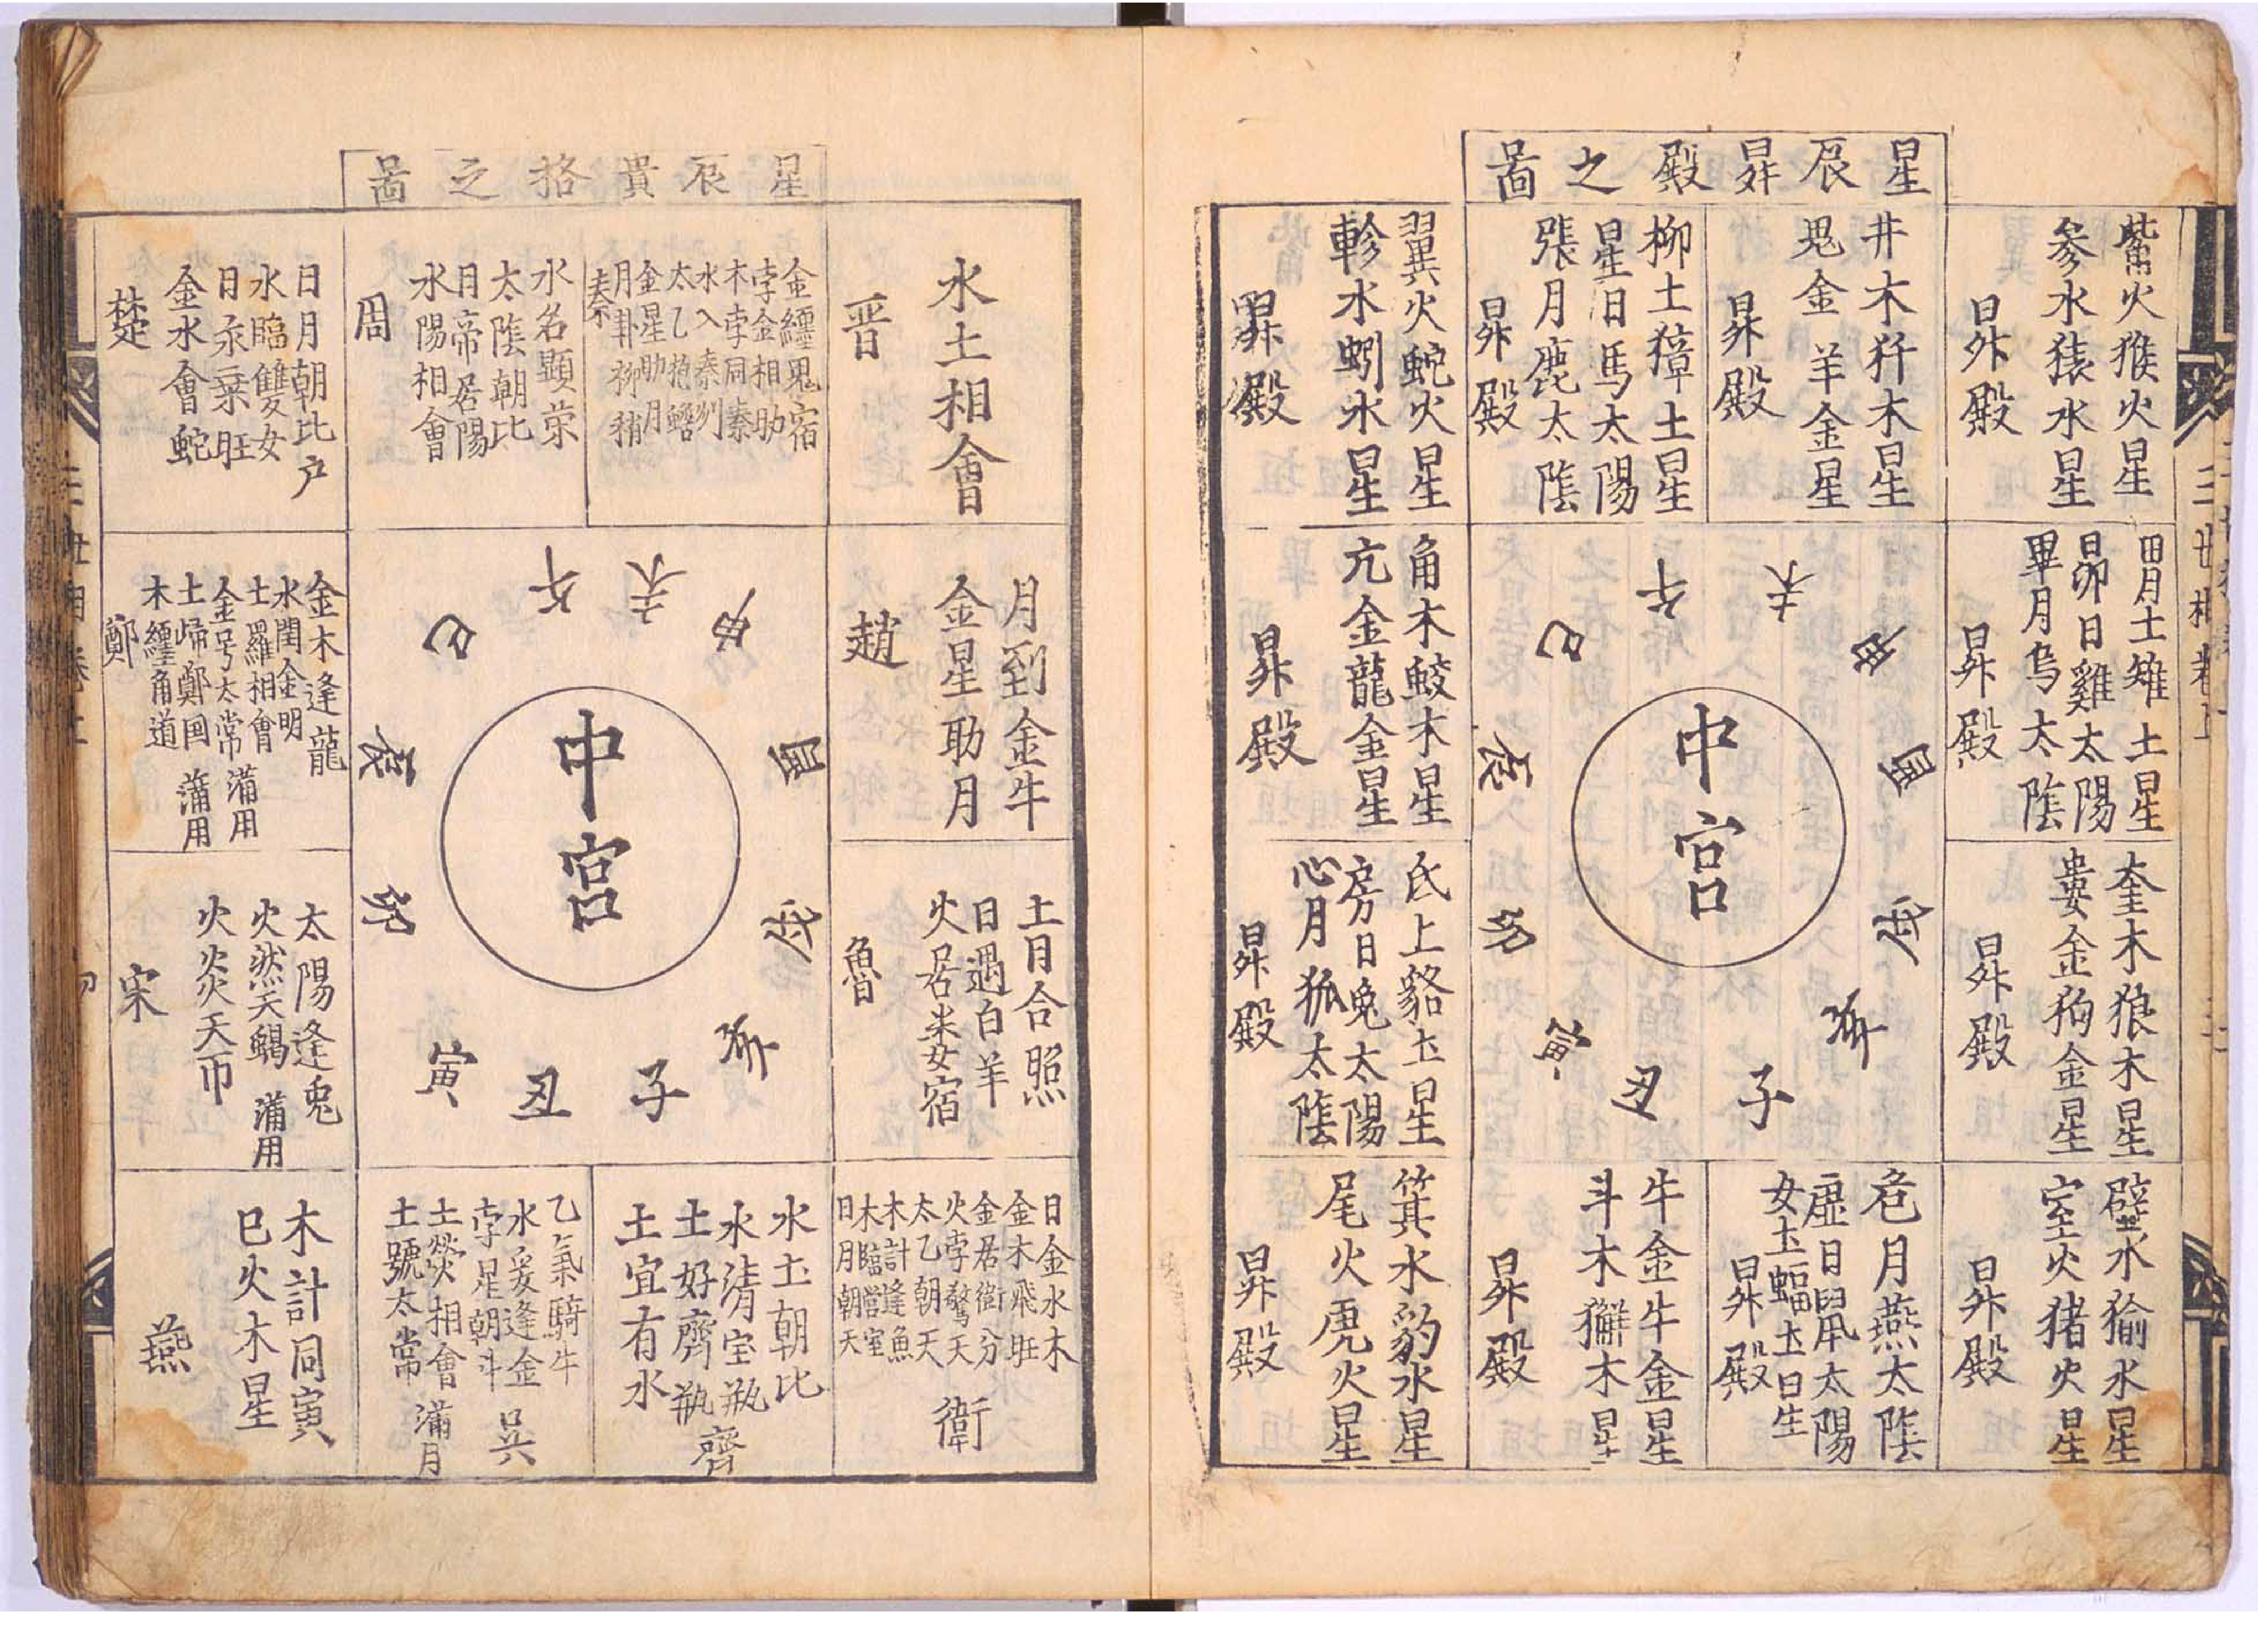 星辰昇殿之圖
觜火猴火星
參水猿水星
昇殿
井木犴木星
鬼金羊金星
昇殿
柳土獐土星
星日馬太陽
張月鹿太陰
昇殿
翼火蛇火星
軫水蚓水星
昇殿
胃土雉土星
昴日雞太陽
畢月烏太陰
昇殿
角木蛟木星
亢金龍金星
昇殿
奎木狼木星
婁金狗金星
昇殿
氐上貉土星
房日兔太陽
心月狐太陰
昇殿
壁水㺄水星
室火猪火星
昇殿
危月燕太陰
虛日鼠太陽
女土蝠土日生
昇殿
牛金牛金星
斗木獬木星
昇殿
箕水豹水星
尾火虎火星
昇殿
中宮
子
丑
寅
卯
辰
巳
午
未
申
酉
戌
亥
三世相卷上
星辰貴格之圖
水土相會
晋
金纏鬼宿
孛金相助
木孛同秦
水入秦州
太乙抱蟾
金星助月
秦
水名顯荣
太陰朝比
月帝居陽
水陽相會
周
日月朝比户
水臨雙女
日乘旺
金水會蛇
楚
月到金牛
金星助月
趙
金木逢龍
水閏金明
土羅相會
金号太常 滿用
土歸鄭国 滿用
木纏角道
鄭
土月合照
日遇白羊
火居婁宿
魯
太陽逢兎
火然天蝎 滿用
火炎天帀
宋
日金水木
金木飛旺
金居衛分
火孛驚天
太乙朝天
木計逢魚
木臨営室
日月朝天
衛
水土朝比
水清宝瓶
土好齊瓶
土宜有水
齊
乙氣騎牛
水爰逢金
孛星朝斗
土熒相會 滿月
土號太常
吳
木計同寅
巳火木星
燕
中宮
子
丑
寅
卯
辰
巳
午
未
申
酉
戌
亥